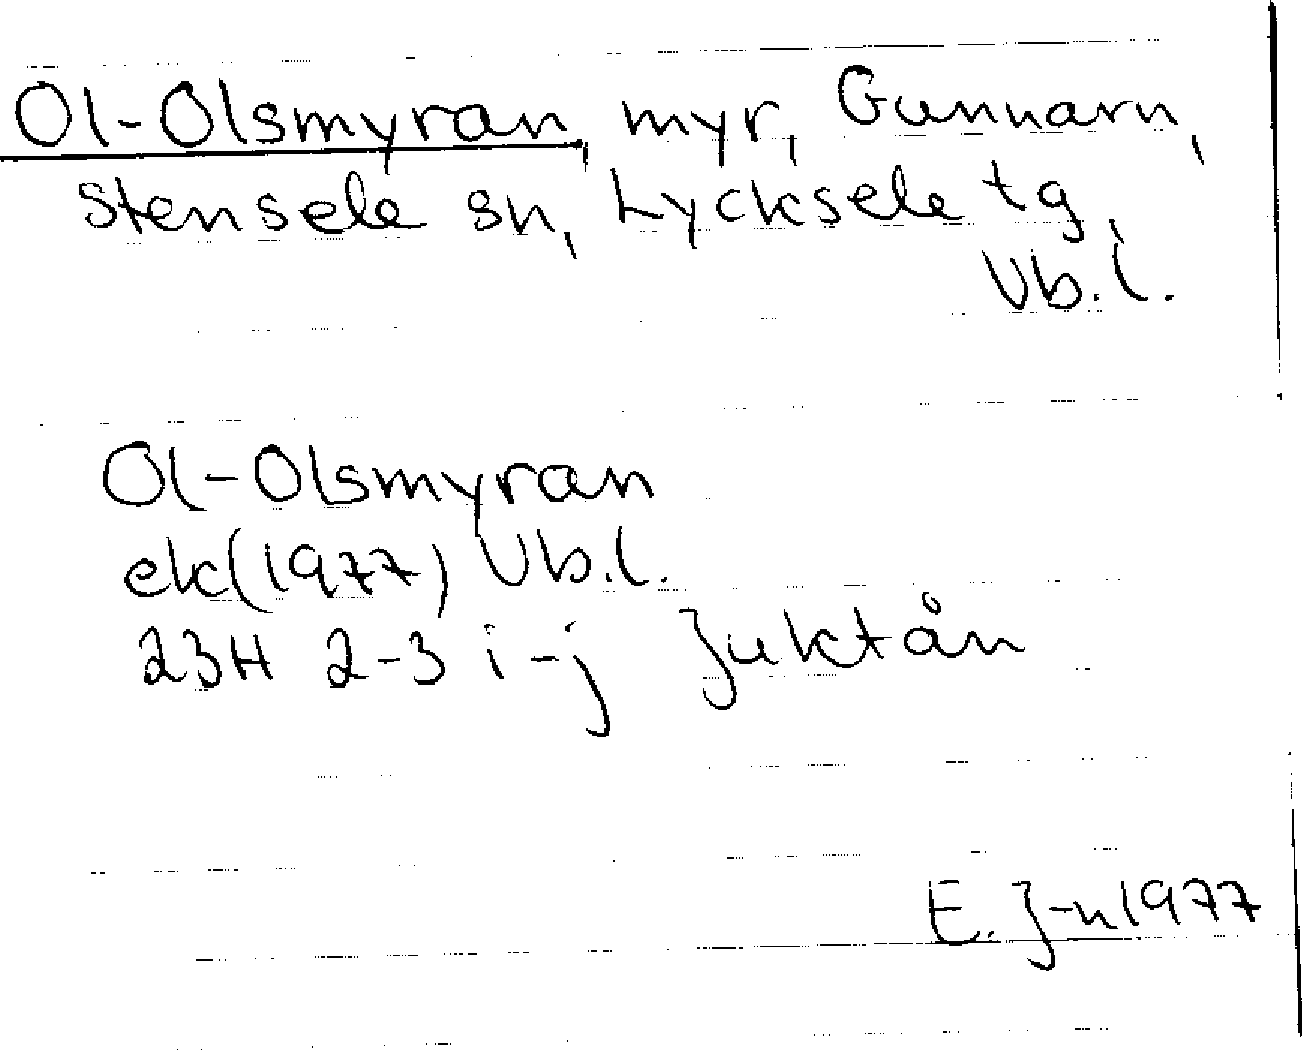 Ol-Olsmyran, myr, Gunnarn,
Stensele sn, Lycksele tg,
Vb.l.
Ol-Olsmyran
ek(1977) Vb.l.
23H 2-3 i-j Juktån
E. J-n 1977